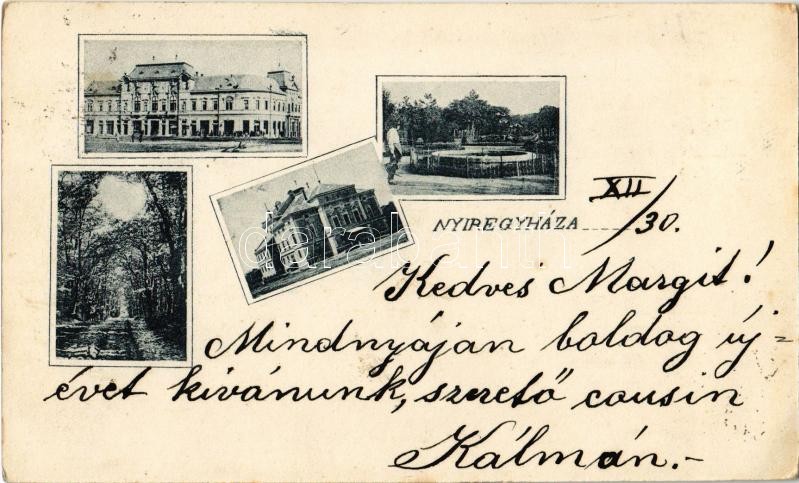 NYIREGYHÁZA XII/30.
Kedves Margit!
Mindnyájan boldog új-
évet kívánunk, szerető cousin
Kálmán.-
darabanth